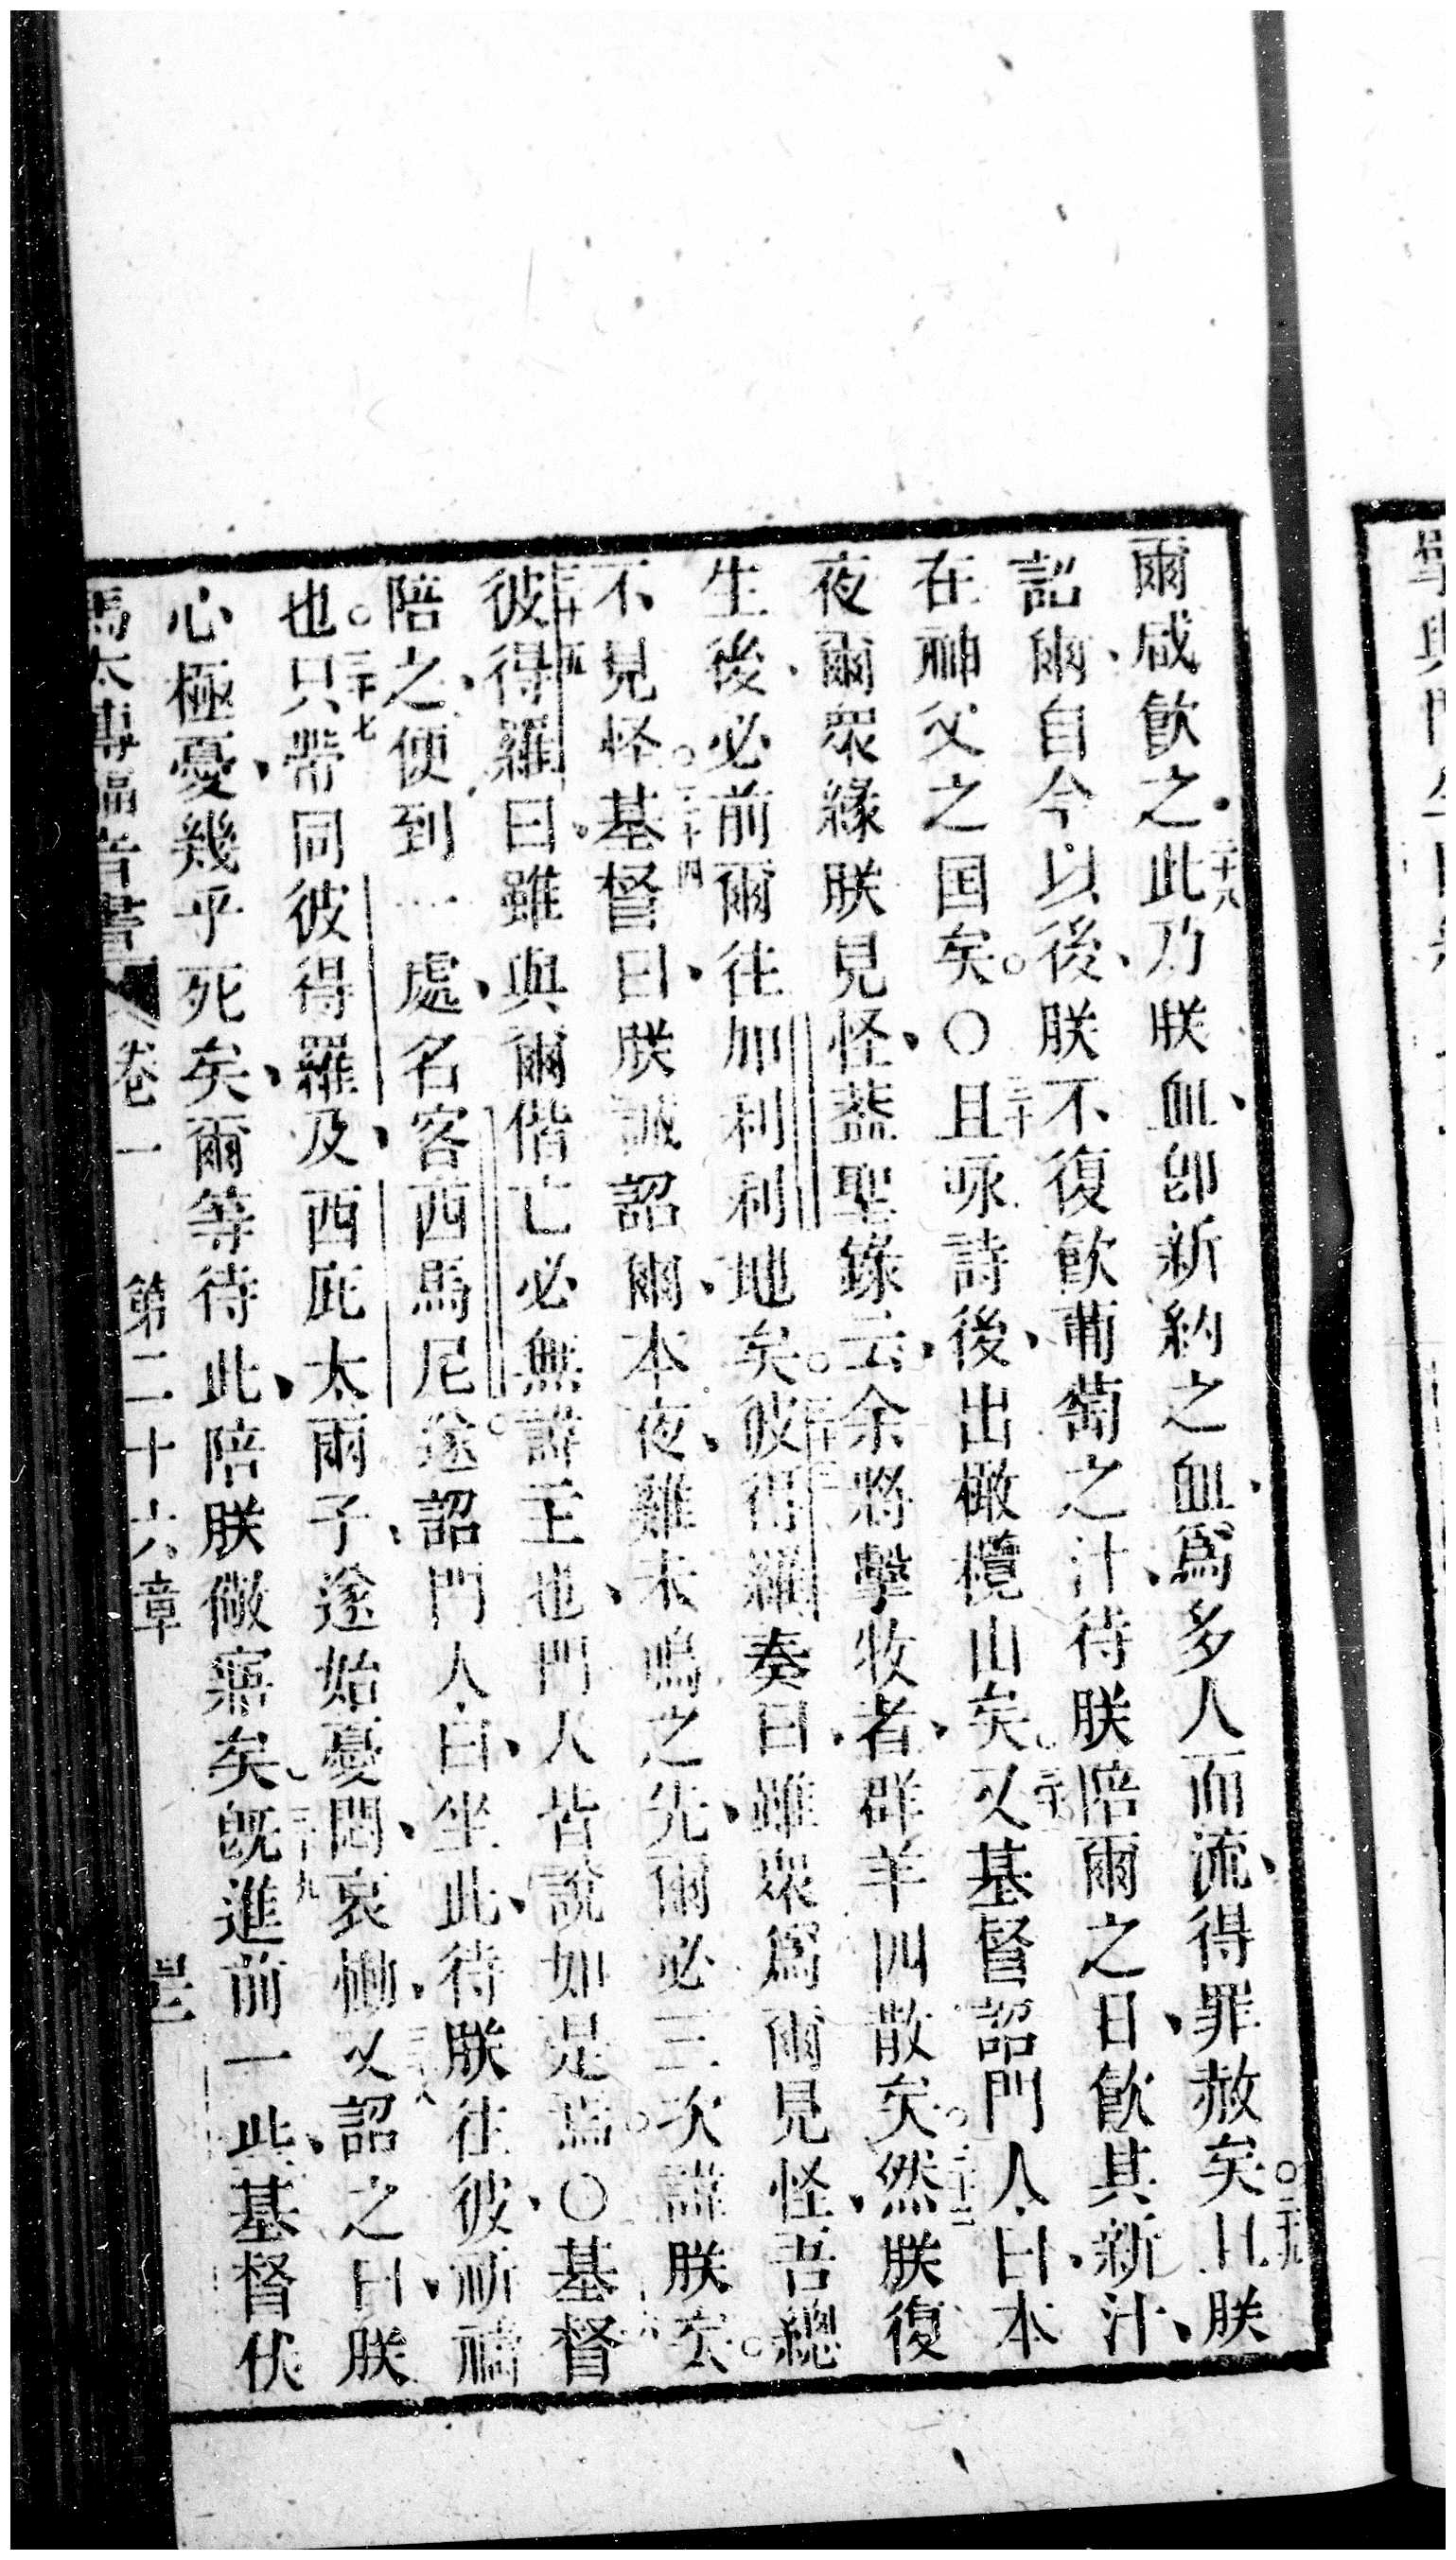 爾咸飲之・二十八此乃朕血、卽新約之血、爲多人而流、得罪赦矣。二十九且朕
詔爾、自今以後、朕不復飲葡萄之汁、待朕陪爾之日、飲其新汁、
在神父之国矣。〇三十且咏詩後、出橄欖山矣。又基督詔門人曰、本
夜爾眾緣朕見怪、葢聖錄云、余將擊牧者、群羊四散矣。三十二然朕復
生後、必前爾往加利利地矣。彼得羅奏曰、雖眾爲爾見怪、吾總
不見怪。三十四基督曰、朕誠詔爾、本夜、雞未鳴之先、爾必三次諱朕玄。
三十五彼得羅曰、雖與爾偕亡、必無諱主也、門人皆說如是焉。〇基督
陪之、便到一處、名客西馬尼。遂詔門人曰、坐此、待朕往彼、祈禱
也。三十七只帶同彼得羅、及西庇太兩子、遂始憂悶、哀慟、三十八又詔之曰、朕
心極憂、幾乎死矣、爾等待此、陪朕儆寤矣。三十九旣進前一此、基督伏
馬太傳福音書 卷一 第二十六章